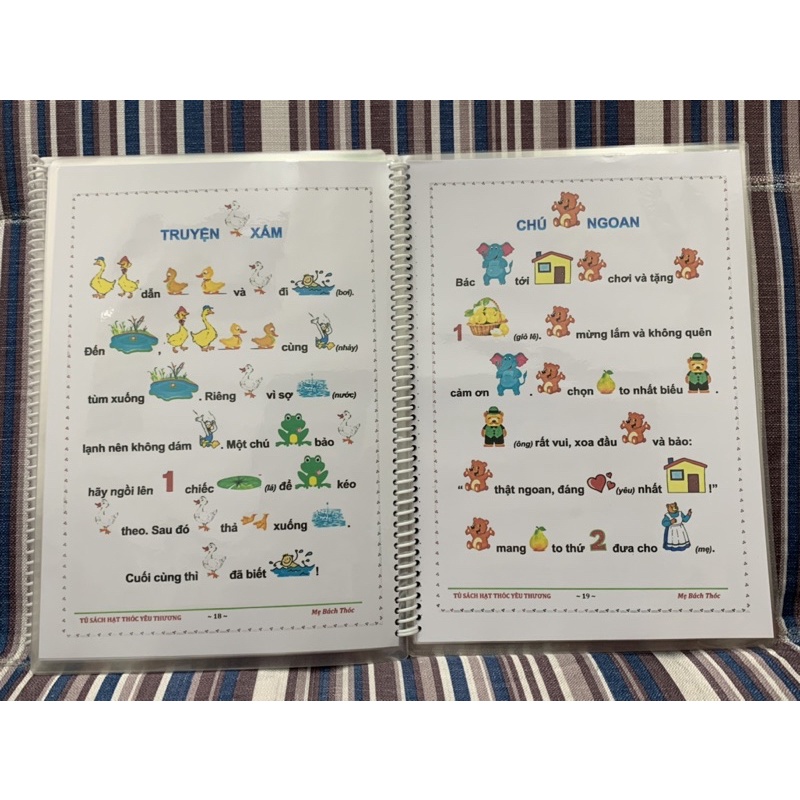 TRUYỆN XÁM
dẫn và đi (bơi).
Đến , cùng (nhảy)
tùm xuống . Riêng vì sợ (nước)
lạnh nên không dám . Một chú bảo
hãy ngồi lên 1 chiếc (lá) để kéo
theo. Sau đó thả xuống .
Cuối cùng thì đã biết !
TỦ SÁCH HẠT THÓC YÊU THƯƠNG ~ 18 ~ Mẹ Bách Thóc
CHÚ NGOAN
Bác tới chơi và tặng
1 (giỏ lê). mừng lắm và không quên
cảm ơn . chọn to nhất biếu .
(ông) rất vui, xoa đầu và bảo:
“ thật ngoan, đáng (yêu) nhất !”
mang to thứ 2 đưa cho (mẹ).
TỦ SÁCH HẠT THÓC YÊU THƯƠNG ~ 19 ~ Mẹ Bách Thóc